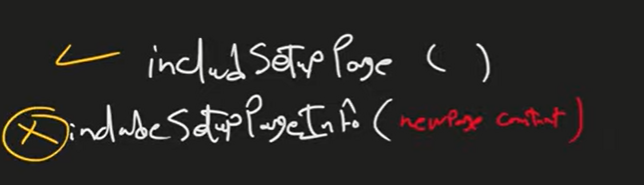 includSetupPage ( )
includeSetupPageInfo (newPage content)